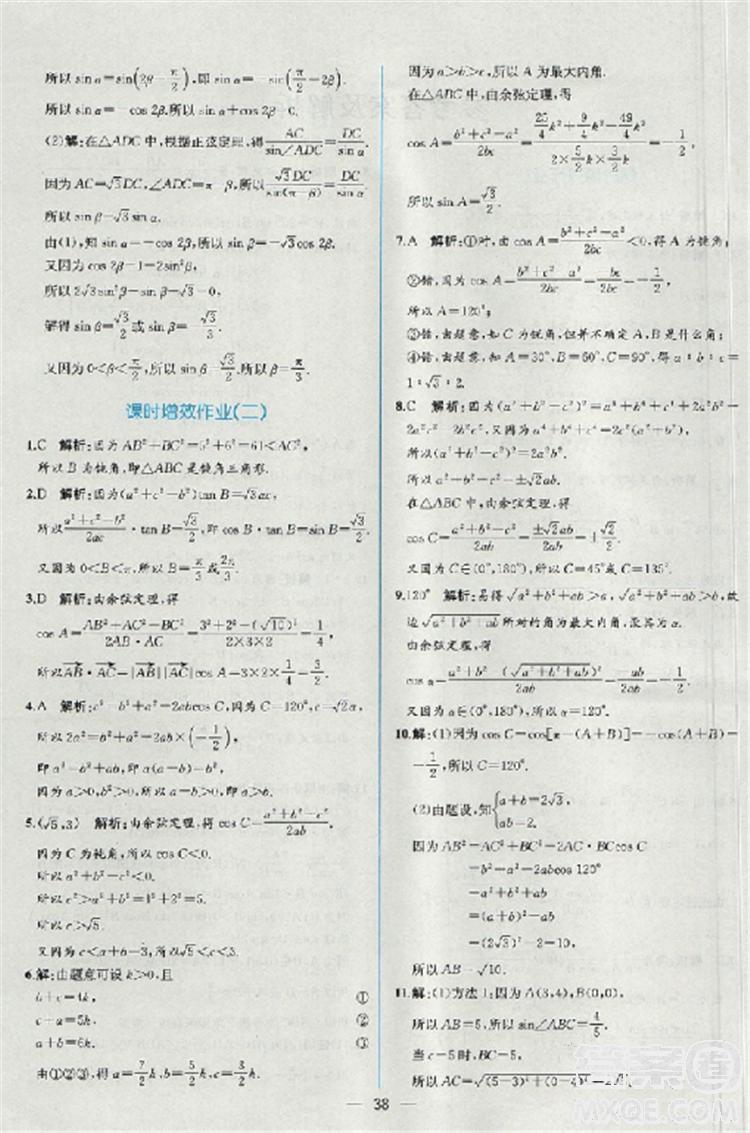 所以 sin α=sin(2β-π/2),即 sin α=-sin(π/2-2β)
=-cos 2β.
所以 sin α+cos 2β=0.
(2)解:在△ADC 中,根据正弦定理,得 AC/sin∠ADC=DC/sin α.
因为 AC=√3DC,∠ADC=π-β,所以 √3DC/sin(π-β)=DC/sin α.
所以 sin β=√3sin α.
由(1),知 sin β=-√3cos 2β.
又因为 cos 2β=1-2sin²β,
所以 2√3sin²β-sin β-√3=0.
解得 sin β=√3/2或 sin β=-√3/3.
又因为 0<β<π/2,所以 sin β=√3/2,所以 β=π/3.
课时增效作业(二)
1.C 解析:因为 AB²+BC²=5²+6²=61<AC²,
所以∠B 为钝角,即△ABC 是钝角三角形.
2.D 解析:因为(a²+c²-b²)tan B=√3ac,
所以 (a²+c²-b²)/2ac·tan B=√3/2,即 cos B·tan B=sin B=√3/2.
又因为 0<B<π,所以 B=π/3或2π/3.
3.D 解析:由余弦定理,得
cos A=(AB²+AC²-BC²)/(2AB·AC)=(3²+2²-(√10)²)/(2×3×2)=1/4,
所以 AB·AC=|AB||AC|cos A=3×2×1/4=3/2.
4.A 解析:c²=a²+b²-2abcos C,因为 C=120°,c=√2a,
所以 2a²=a²+b²-2ab×(-1/2),
即 a²=b²+ab,即 a²-b²=ab,
因为 a>0,b>0,所以 a>b.
5.(√5,3) 解析:由余弦定理,得 cos C=(a²+b²-c²)/2ab.
因为 C 为钝角,所以 cos C<0.
所以 a²+b²-c²=1+4-c²<0.
所以 c>√5.
又因为 c<a+b=3,所以 √5<c<3.
6.解:由题意可设 k>0,且
b+c=4k, ①
c+a=5k, ②
a+b=6k. ③
由①②③,得 a=7/2k,b=5/2k,c=3/2k.
因为 a>b>c,所以 A 为最大内角.
在△ABC 中,由余弦定理,得
cos A=(b²+c²-a²)/2bc=(25/4k²+9/4k²-49/4k²)/(2×5/2k×3/2k)=-1/2.
所以 sin A=√3/2.
7.A 解析:①
②错,cos A=(b²+c²-a²)/2bc=-bc/2bc=-1/2,
所以 A=120°;
③错,由题意,知 C 为锐角,但不确定 A,B 是什么角;
④错,由题意,知 A=30°,B=60°,C=90°,故 a∶b∶c=
1∶√3∶2.
8.C
在△ABC 中,由余弦定理,得
cos C=(a²+b²-c²)/2ab=±√2ab/2ab=±√2/2.
又因为 C∈(0°,180°),所以 C=45°或 C=135°.
9.120° 解析:易得 √(a²+b²+ab)>a,√(a²+b²+ab)>b,故
边 √(a²+b²+ab) 所对的角为最大内角,设其为 α.
由余弦定理,得
cos α=(a²+b²-(√(a²+b²+ab))²)/2ab=-1/2.
又因为 α∈(0°,180°),所以 α=120°.
10.解:(1)因为 cos C=cos[π-(A+B)]=-cos(A+B)=
-1/2,所以 C=120°.
(2)由题设,知{a+b=2√3,
ab=2.
因为 AB²=AC²+BC²-2AC·BCcos C
=b²+a²-2abcos 120°
=a²+b²+ab
=(a+b)²-ab
=(2√3)²-2=10,
所以 AB=√10.
11.解:(1)方法 1:因为 A(3,4),B(0,0),
所以 AB=5,所以 sin∠ABC=4/5.
当 c=5时,BC=5,
38
答案圈
MXQE.COM